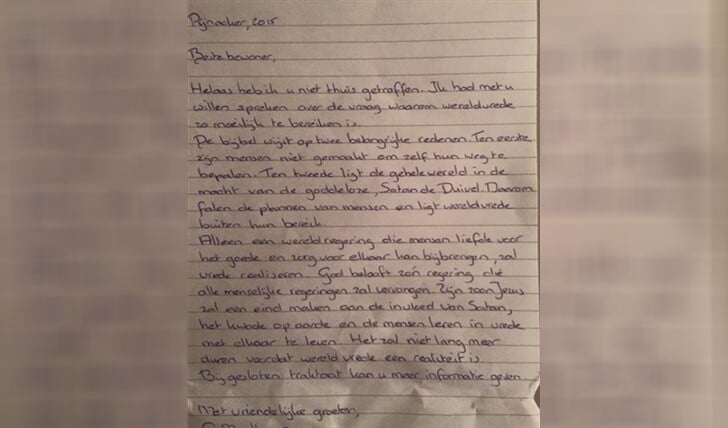 Pijnacker, 2015
Beste bewoner,
Helaas heb ik u niet thuis getroffen. Ik had met u
willen spreken over de vraag waarom wereldvrede
zo moeilijk te bereiken is.
De bijbel wijst op twee belangrijke redenen. Ten eerste
zijn mensen niet gemaakt om zelf hun weg te
bepalen. Ten tweede ligt de gehele wereld in de
macht van de goddeloze, Satan de Duivel. Daarom
falen de plannen van mensen en ligt wereldvrede
buiten hun bereik.
Alleen een wereldregering die mensen liefde voor
het goede en zorg voor elkaar kan bijbrengen, zal
vrede realiseren. God belooft zo'n regering die
alle menselijke regeringen zal vervangen. Zijn zoon Jezus
zal een eind maken aan de invloed van Satan,
het kwade op aarde en de mensen leren in vrede
met elkaar te leven. Het zal niet lang meer
duren voordat wereld vrede een realiteit is
Bijgesloten traktaat kan u meer informatie geven.
Met vriendelijke groeten,